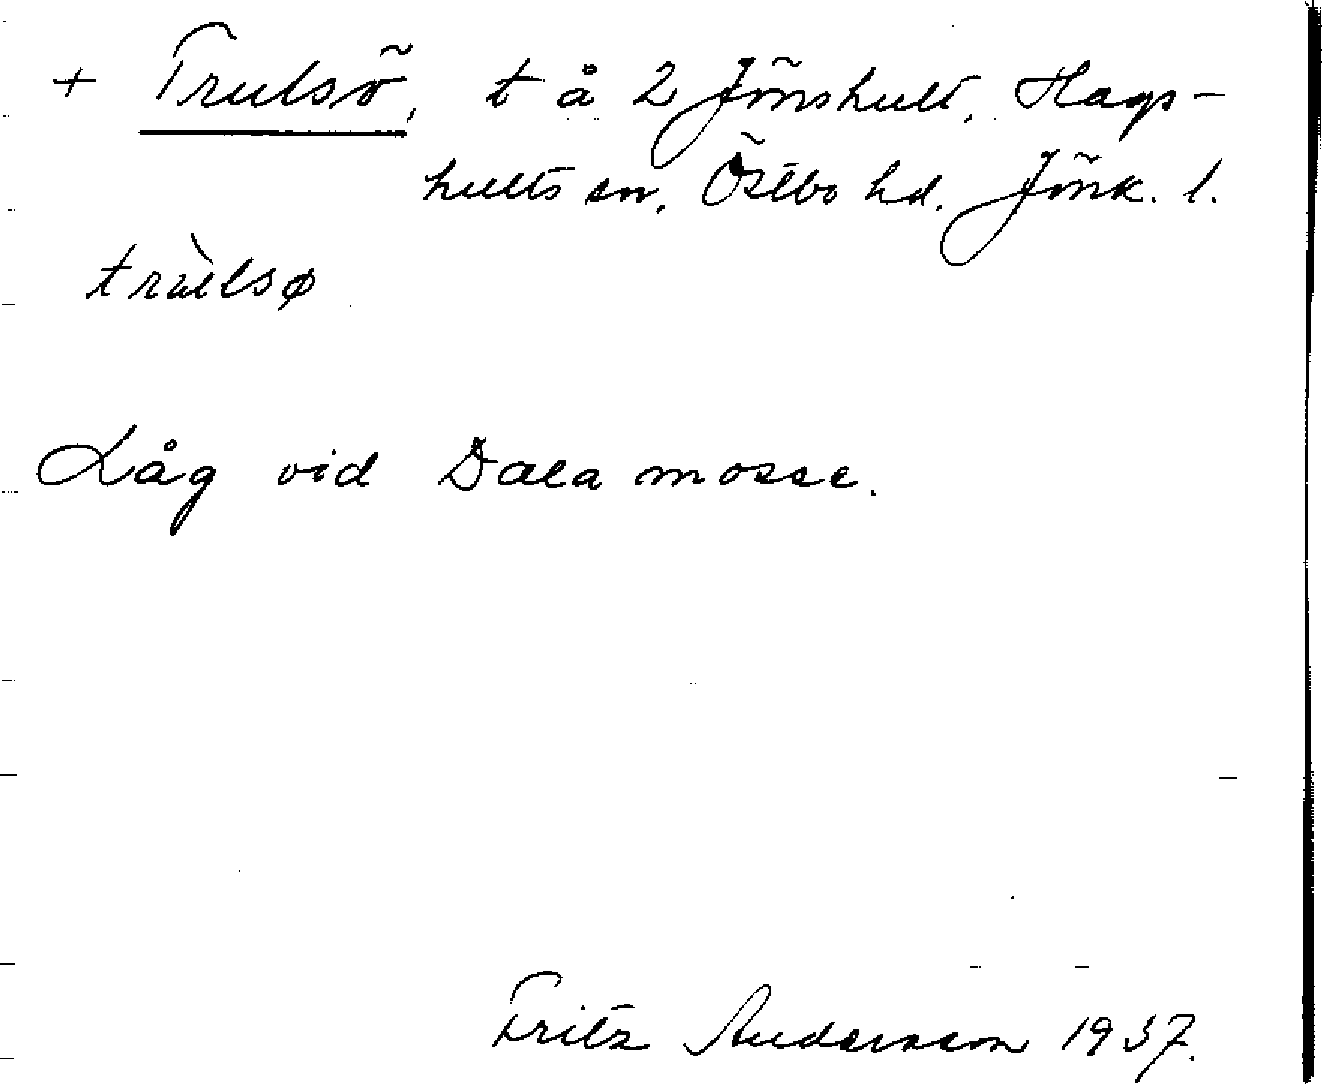 + Trulsö, t å 2 Jönshult, Hags-
hults sn, Östbo hd. Jönk. l.
trùlsø
Låg vid Dala mosse.
Fritz Andersson 1937.